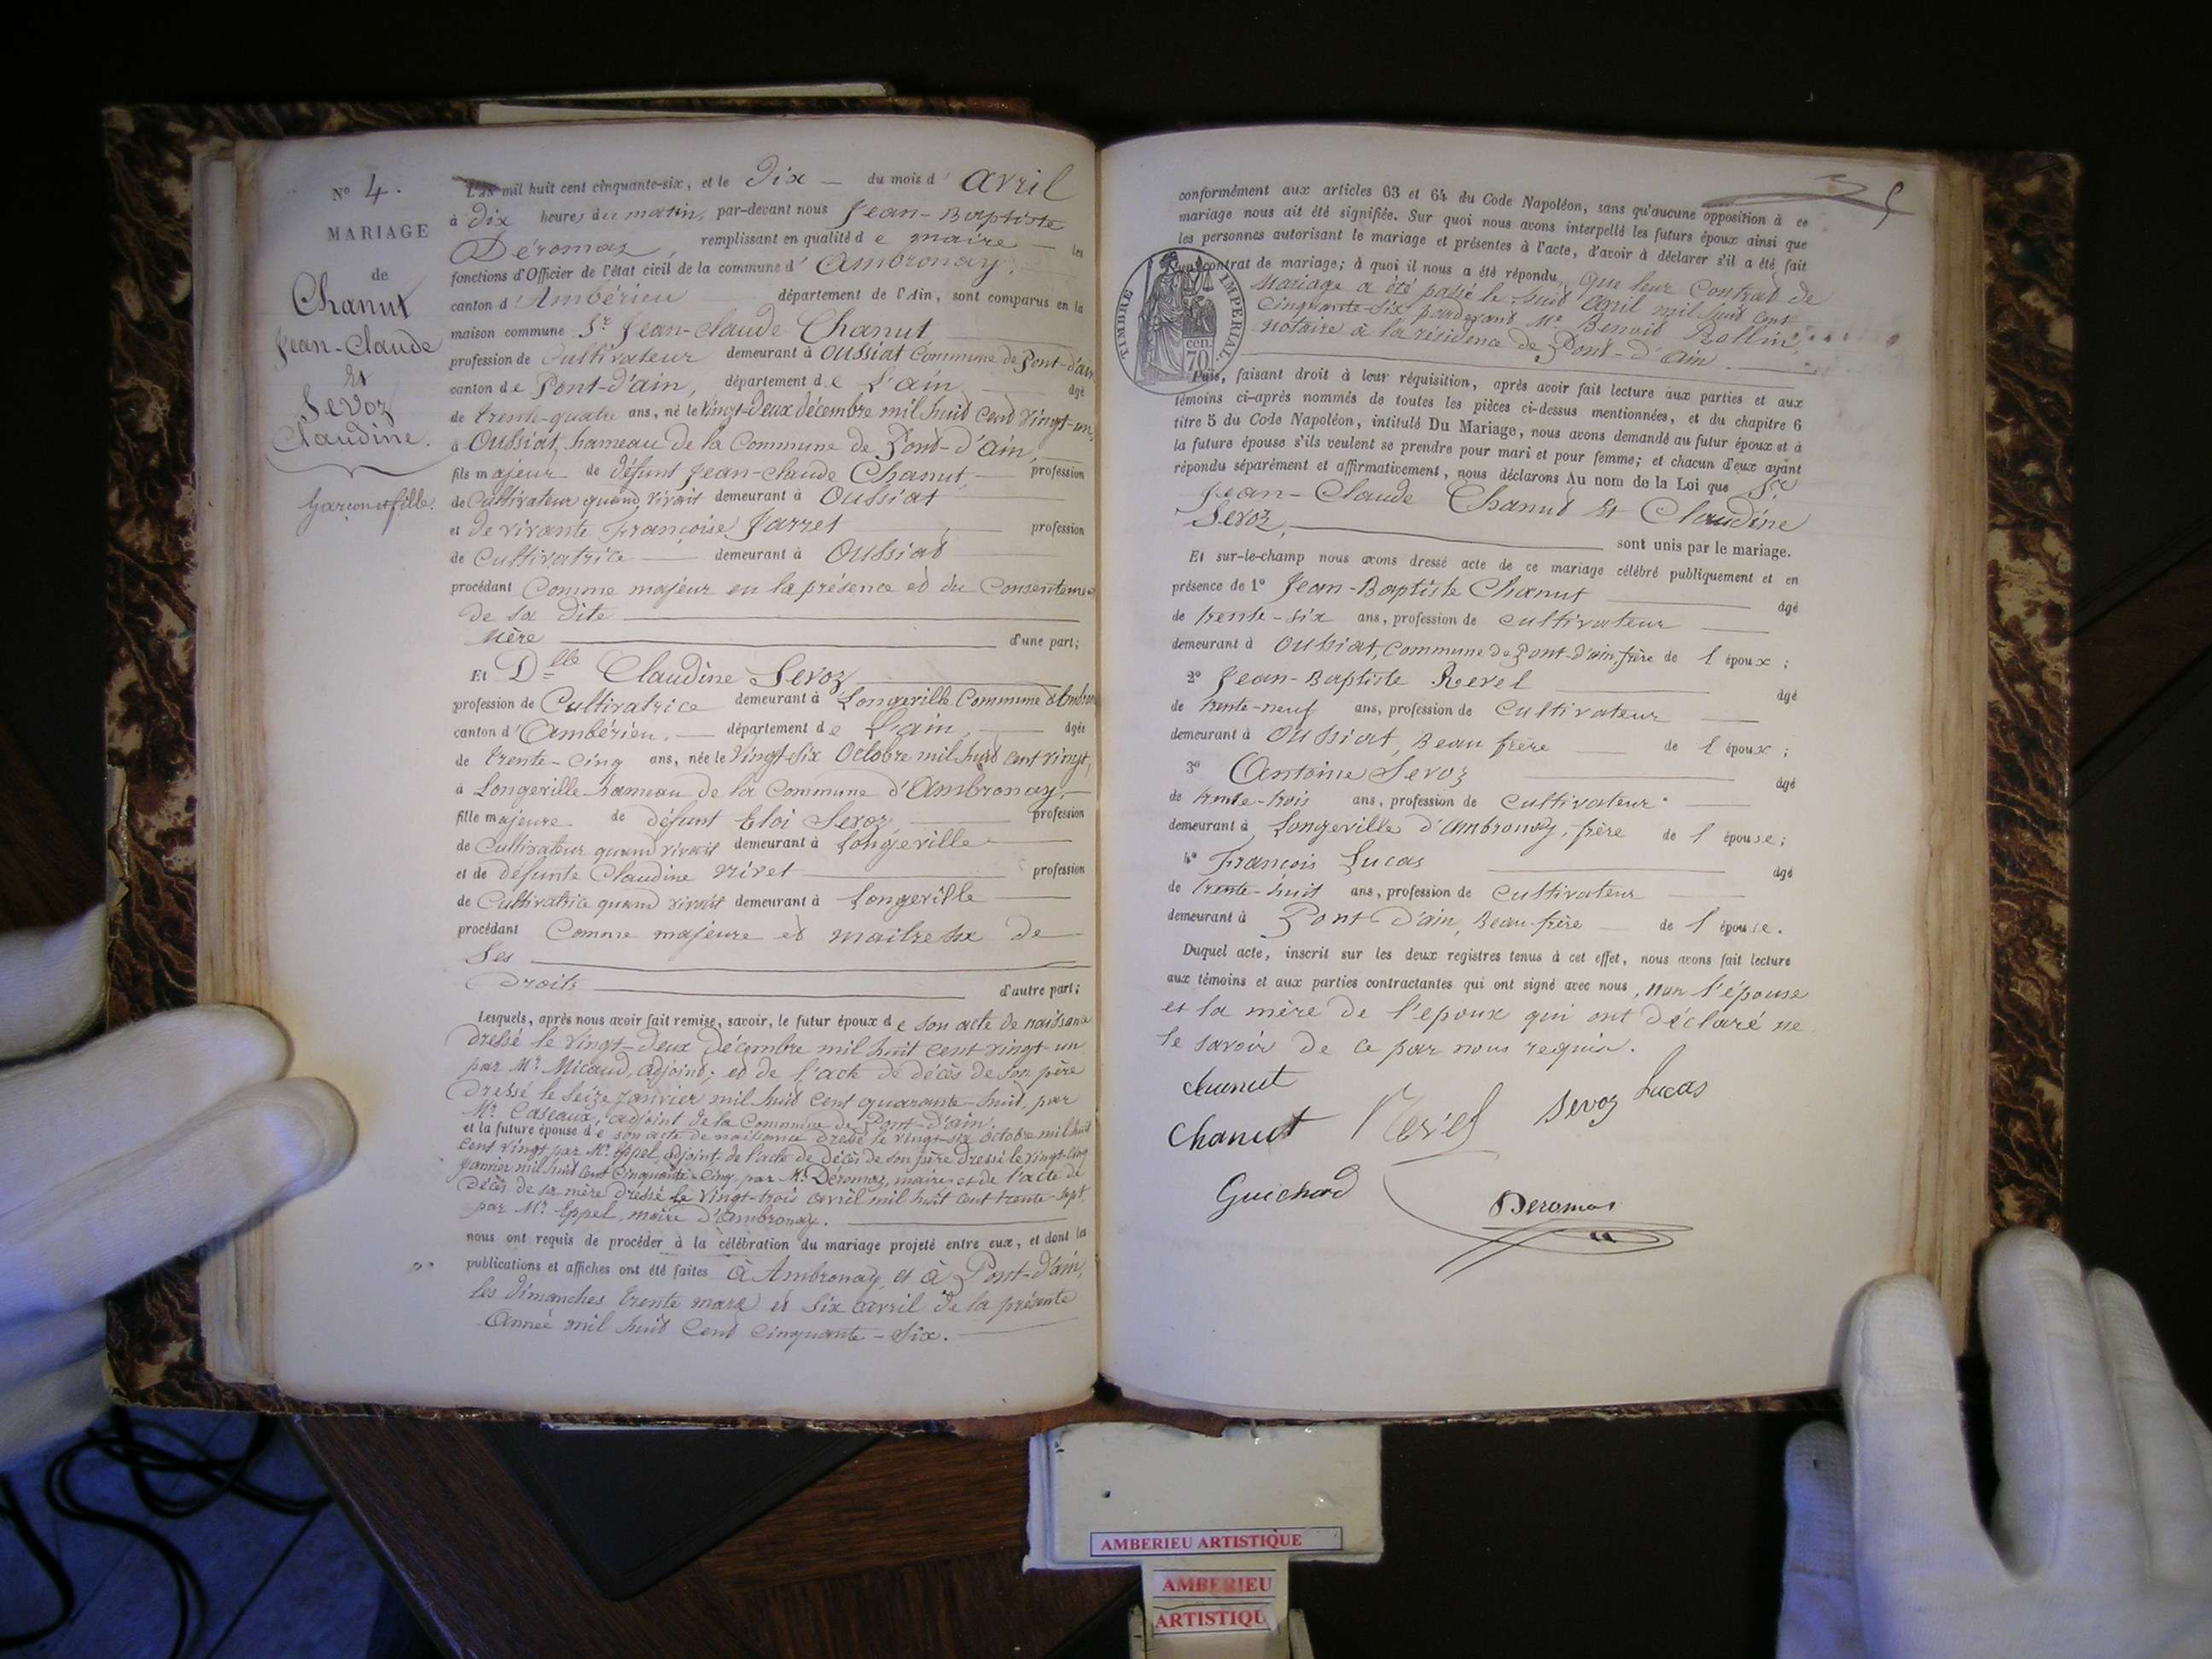 N° 4.
MARIAGE
de
Chanut
Jean-Claude
Et
Sevoz
Claudine.
Garçon et fille.
L'an mil huit cent cinquante-six, et le Dix — du mois d' avril
à Dix heures du matin, par-devant nous Jean-Baptiste
Déromas, remplissant en qualité de maire — les
fonctions d'Officier de l'état civil de la commune d' Ambronay,
canton d' Ambérieu département de l'Ain, sont comparus en la
maison commune Sr Jean-Claude Chanut
profession de Cultivateur demeurant à Oussiat Commune de Pont-d'ain
canton de Pont-d'ain, département de L'ain — âgé
de trente-quatre ans, né le Vingt-deux décembre mil huit Cent vingt-un,
à Oussiat, hameau de la Commune de Pont-d'ain,
fils majeur de défunt Jean-Claude Chanut, — profession
de Cultivateur quand vivait demeurant à Oussiat
et de vivante Françoise Jarret profession
de Cultivatrice — demeurant à Oussiat
procédant Comme majeur en la présence et du Consenteme
de sa dite
Mère d'une part;
Et Dlle Claudine Sevoz
profession de Cultivatrice demeurant à Longeville Commune d'Ambron
canton d' Ambérieu, — département de L'ain, — âgée
de trente-cinq ans, née le Vingt-six Octobre mil huit cent vingt,
à Longeville hameau de la Commune d'Ambronay,
fille majeure de défunt Eloi Sevoz, profession
de Cultivateur quand vivait demeurant à Longeville
et de défunte Claudine Nivet profession
de Cultivatrice quand vivait demeurant à Longeville
procédant Comme majeure et maitresse de
Ses
Droits d'autre part;
Lesquels, après nous avoir fait remise, savoir, le futur époux de son acte de naissance
dressé le vingt-deux Décembre mil huit cent vingt-un
par Mr Micaud, adjoint; et de l'acte de décès de son père
dressé le seize janvier mil huit cent quarante-huit, par
Mr Caseaux, adjoint de la Commune de Pont-d'ain.
et la future épouse de son acte de naissance dressé le vingt-six octobre mil huit
cent vingt par Mr Eppel, adjoint, de l'acte de décès de son père dressé le vingt-cinq
janvier mil huit cent Cinquante-Cinq par Mr Déromas, maire, et de l'acte de
Décès de sa mère dressé le vingt-trois avril mil huit cent trente-sept,
par Mr Eppel, maire d'Ambronay.
nous ont requis de procéder à la célébration du mariage projeté entre eux, et dont les
publications et affiches ont été faites à Ambronay et à Pont-d'ain,
les dimanches trente mars et six avril de la présente
Année mil huit Cent Cinquante-Six.
5
conformément aux articles 63 et 64 du Code Napoléon, sans qu'aucune opposition à ce
mariage nous ait été signifiée. Sur quoi nous avons interpellé les futurs époux ainsi que
les personnes autorisant le mariage et présentes à l'acte, d'avoir à déclarer s'il a été fait
un contrat de mariage; à quoi il nous a été répondu, Que leur Contrat de
Mariage a été passé le huit avril mil huit cent
Cinquante-six pardevant Me Benoit Rollin,
notaire à la résidence de Pont-d'ain.
TIMBRE IMPERIAL
cen.
70
Puis, faisant droit à leur réquisition, après avoir fait lecture aux parties et aux
témoins ci-après nommés de toutes les pièces ci-dessus mentionnées, et du chapitre 6
titre 5 du Code Napoléon, intitulé Du Mariage, nous avons demandé au futur époux et à
la future épouse s'ils veulent se prendre pour mari et pour femme; et chacun d'eux ayant
répondu séparément et affirmativement, nous déclarons Au nom de la Loi que Sr
Jean-Claude Chanut Et Claudine
Sevoz, sont unis par le mariage.
Et sur-le-champ nous avons dressé acte de ce mariage célébré publiquement et en
présence de 1° Jean-Baptiste Chanut âgé
de trente-six ans, profession de Cultivateur
demeurant à Oussiat, Commune de Pont-d'ain, frère de l époux;
2° Jean-Baptiste Revel âgé
de trente-neuf ans, profession de Cultivateur
demeurant à Oussiat, Beau frère — de l époux;
3° Antoine Sevoz âgé
de trente-trois ans, profession de Cultivateur
demeurant à Longeville d'Ambronay, frère de l épouse;
4° François Lucas âgé
de trente-huit ans, profession de Cultivateur
demeurant à Pont d'ain, Beau-frère — de l épouse.
Duquel acte, inscrit sur les deux registres tenus à cet effet, nous avons fait lecture
aux témoins et aux parties contractantes qui ont signé avec nous, non l'épouse
et la mère de l'époux qui ont déclaré ne
le savoir de ce par nous requis.
Chanut
Chanut Revel Sevoz Lucas
Guichard
Deromas
AMBERIEU ARTISTIQUE
AMBERIEU
ARTISTIQU